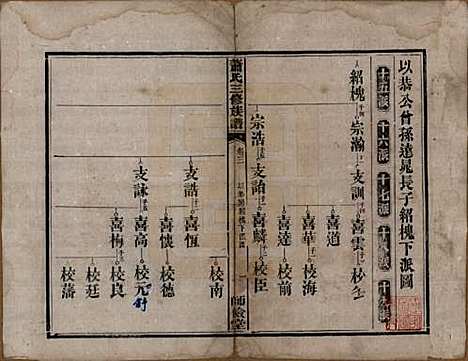 以恭公曾孫達晁長子紹槐下派圖
十五派 十六派 十七派 十八派 十九派
紹槐 宗瀚 支訓 喜雲 校
喜道
喜華 校海
喜達 校前
宗浩 支詒 喜麟 校臣
蕭氏三修族譜
師儉堂
校南
支誥 喜恆
喜懷 校德
支詠 喜高 校元
喜梅 校良
校廷
校藩